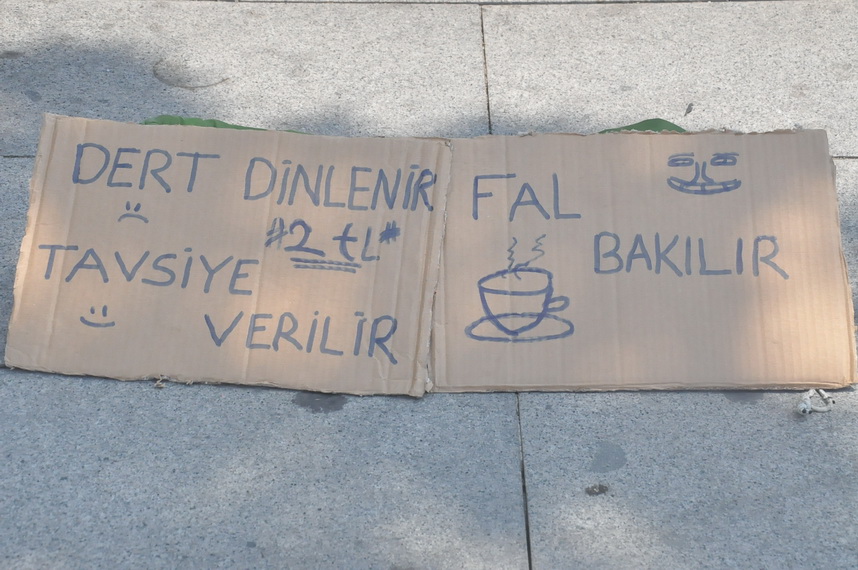 DERT DİNLENİR
#2 tL#
TAVSİYE
VERİLİR
FAL
BAKILIR